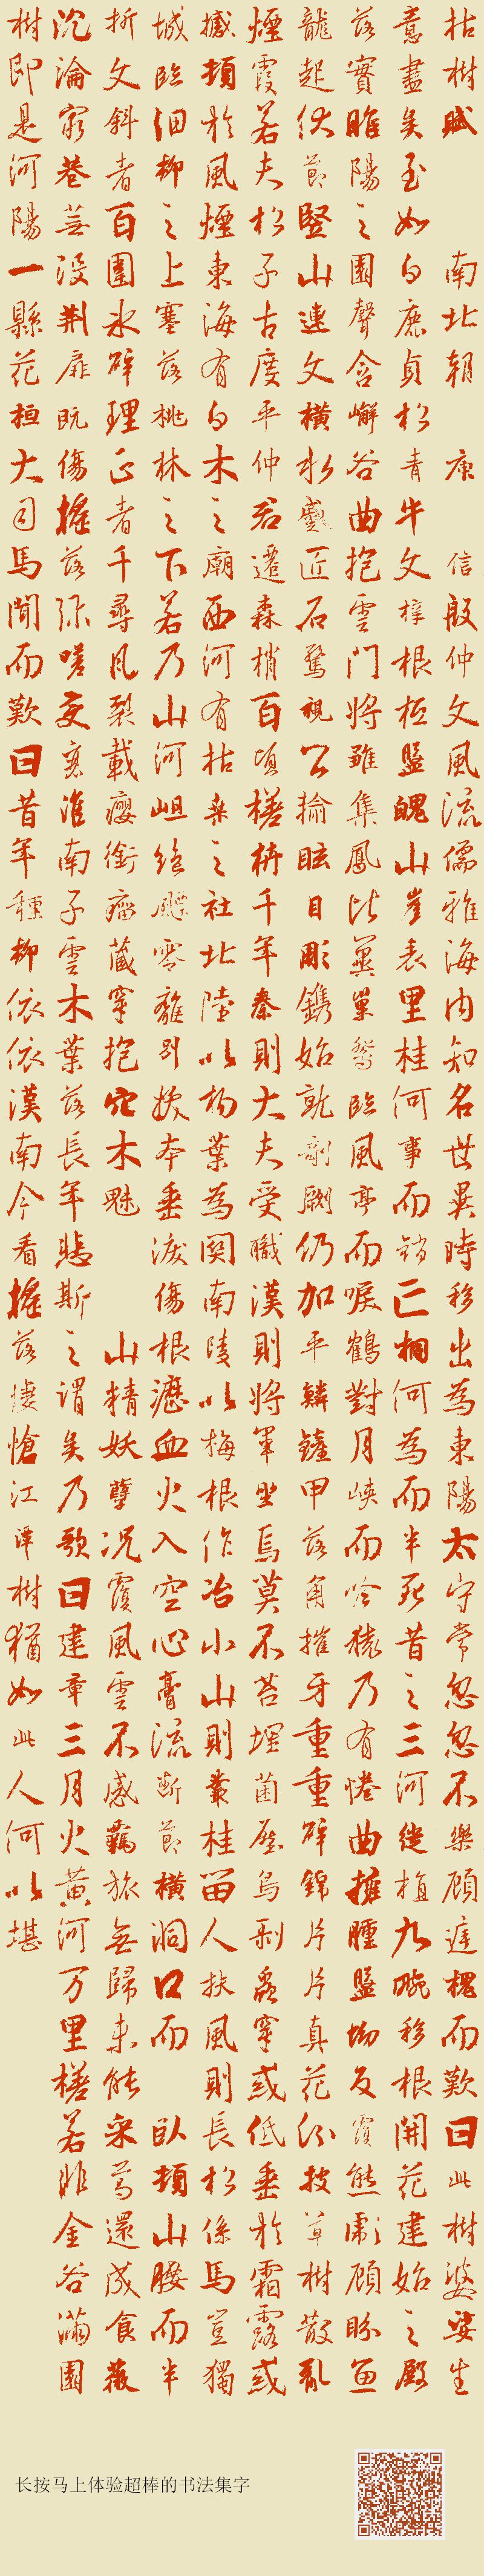 枯樹賦 南北朝 庾信 殷仲文風流儒雅海內知名世異時移出為東陽太守常忽忽不樂顧庭槐而歎曰此樹婆娑生
意盡矣至如白鹿貞松青牛文梓根柢盤魄山崖表里桂何事而銷亡桐何為而半死昔之三河徙植九畹移根開花建始之殿
落實睢陽之園聲含嶰谷曲抱雲門將雛集鳳比翼巢鴛臨風亭而唳鶴對月峽而吟猿乃有惓曲擁腫盤坳反覆熊彪顧盼魚
龍起伏節豎山連文橫水蹙匠石驚視公輸眩目彫鐫始就剞劂仍加平鱗鏟甲落角摧牙重重碎錦片片真花紛披草樹散亂
煙霞若夫松子古度平仲君遷森梢百頃槎枿千年秦則大夫受職漢則將軍坐焉莫不苔埋菌壓鳥剝蟲穿或低垂於霜露或
撼頓於風煙東海有白木之廟西河有枯桑之社北陸以楊葉為關南陵以梅根作冶小山則叢桂留人扶風則長松係馬豈獨
城臨細柳之上塞落桃林之下若乃山河岨絕飄零離別拔本垂淚傷根瀝血火入空心膏流斷節橫洞口而 臥頓山腰而半
折文斜者百圍冰碎理正者千尋瓦裂載癭銜瘤藏穿抱穴木魅 山精妖孽況覆風雲不感羈旅無歸未能采葛還成食薇
沉淪窮巷蕪沒荊扉既傷搖落彌嗟變衰淮南子雲木葉落長年悲斯之謂矣乃歌曰建章三月火黃河万里槎若非金谷滿園
樹即是河陽一縣花桓大司馬聞而歎曰昔年種柳依依漢南今看搖落悽愴江潭樹猶如此人何以堪
长按马上体验超棒的书法集字